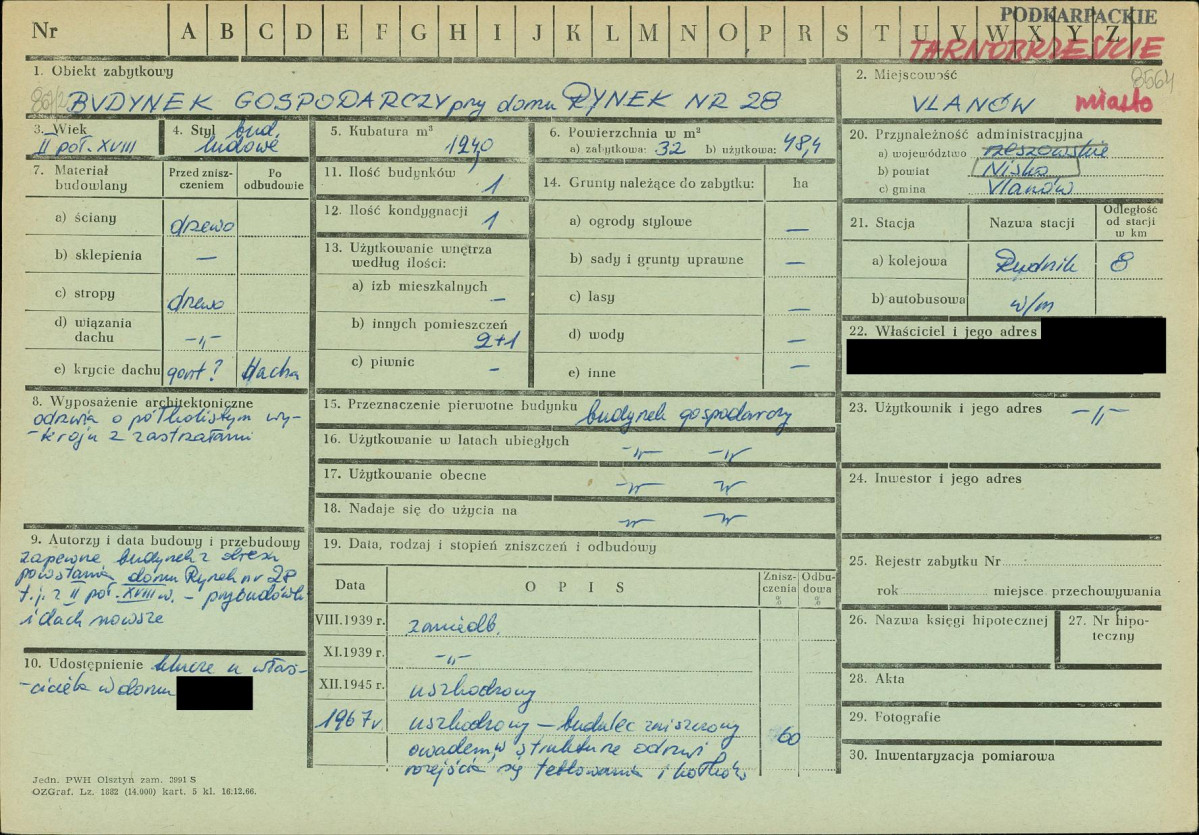 PODKARPACKIE
Nr A B C D E F G H I J K L M N O P R S T U V W X Y Z
TARNOBRZESKIE
1. Obiekt zabytkowy
BUDYNEK GOSPODARCZY przy domu RYNEK NR 28
2. Miejscowość
8564
ULANÓW miasto
3. Wiek
II poł. XVIII
4. Styl bud.
ludowe
5. Kubatura m³
124,0
6. Powierzchnia w m²
a) zabytkowa: 32 b) użytkowa: 48,4
20. Przynależność administracyjna
a) województwo rzeszowskie
b) powiat Nisko
c) gmina Ulanów
7. Materiał budowlany
Przed zniszczeniem
Po odbudowie
a) ściany drzewo
b) sklepienia —
c) stropy drzewo
d) wiązania dachu —„—
e) krycie dachu gont? blacha
11. Ilość budynków 1
12. Ilość kondygnacji 1
13. Użytkowanie wnętrza
według ilości:
a) izb mieszkalnych —
b) innych pomieszczeń
2+1
c) piwnic —
14. Grunty należące do zabytku: ha
a) ogrody stylowe —
b) sady i grunty uprawne —
c) lasy —
d) wody —
e) inne —
21. Stacja Nazwa stacji Odległość od stacji w km
a) kolejowa Rudnik 8
b) autobusowa w/m
22. Właściciel i jego adres
8. Wyposażenie architektoniczne
odrzwia o półkolistym wy-
-kroju z zastrzałami
15. Przeznaczenie pierwotne budynku budynek gospodarczy
16. Użytkowanie w latach ubiegłych —„— —„—
17. Użytkowanie obecne —„— „
18. Nadaje się do użycia na —„— „
23. Użytkownik i jego adres —„—
24. Inwestor i jego adres
9. Autorzy i data budowy i przebudowy
zapewne budynek z okresu
powstania domu Rynek nr 28
t.j. z II poł. XVIII w. – przybudówki
i dach nowsze
10. Udostępnienie klucze u właś-
-ciciela w domu
19. Data, rodzaj i stopień zniszczeń i odbudowy
Data O P I S Zniszczenia % Odbudowa %
VIII.1939 r. zaniedb.
XI.1939 r. —„—
XII.1945 r. uszkodzony
1967 r uszkodzony – budulec zniszczony 60
owadem, w strukturze odrzwi
rozejścia się
25. Rejestr zabytku Nr
rok miejsce przechowywania
26. Nazwa księgi hipotecznej
27. Nr hipo-
teczny
28. Akta
29. Fotografie
30. Inwentaryzacja pomiarowa
Jedn. PWH Olsztyn zam. 3991 S
OZGraf. Lz. 1882 (14.000) kart. 5 kl. 16.12.66.